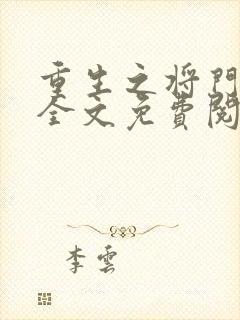 重生之将門
全文免費閱
李雲